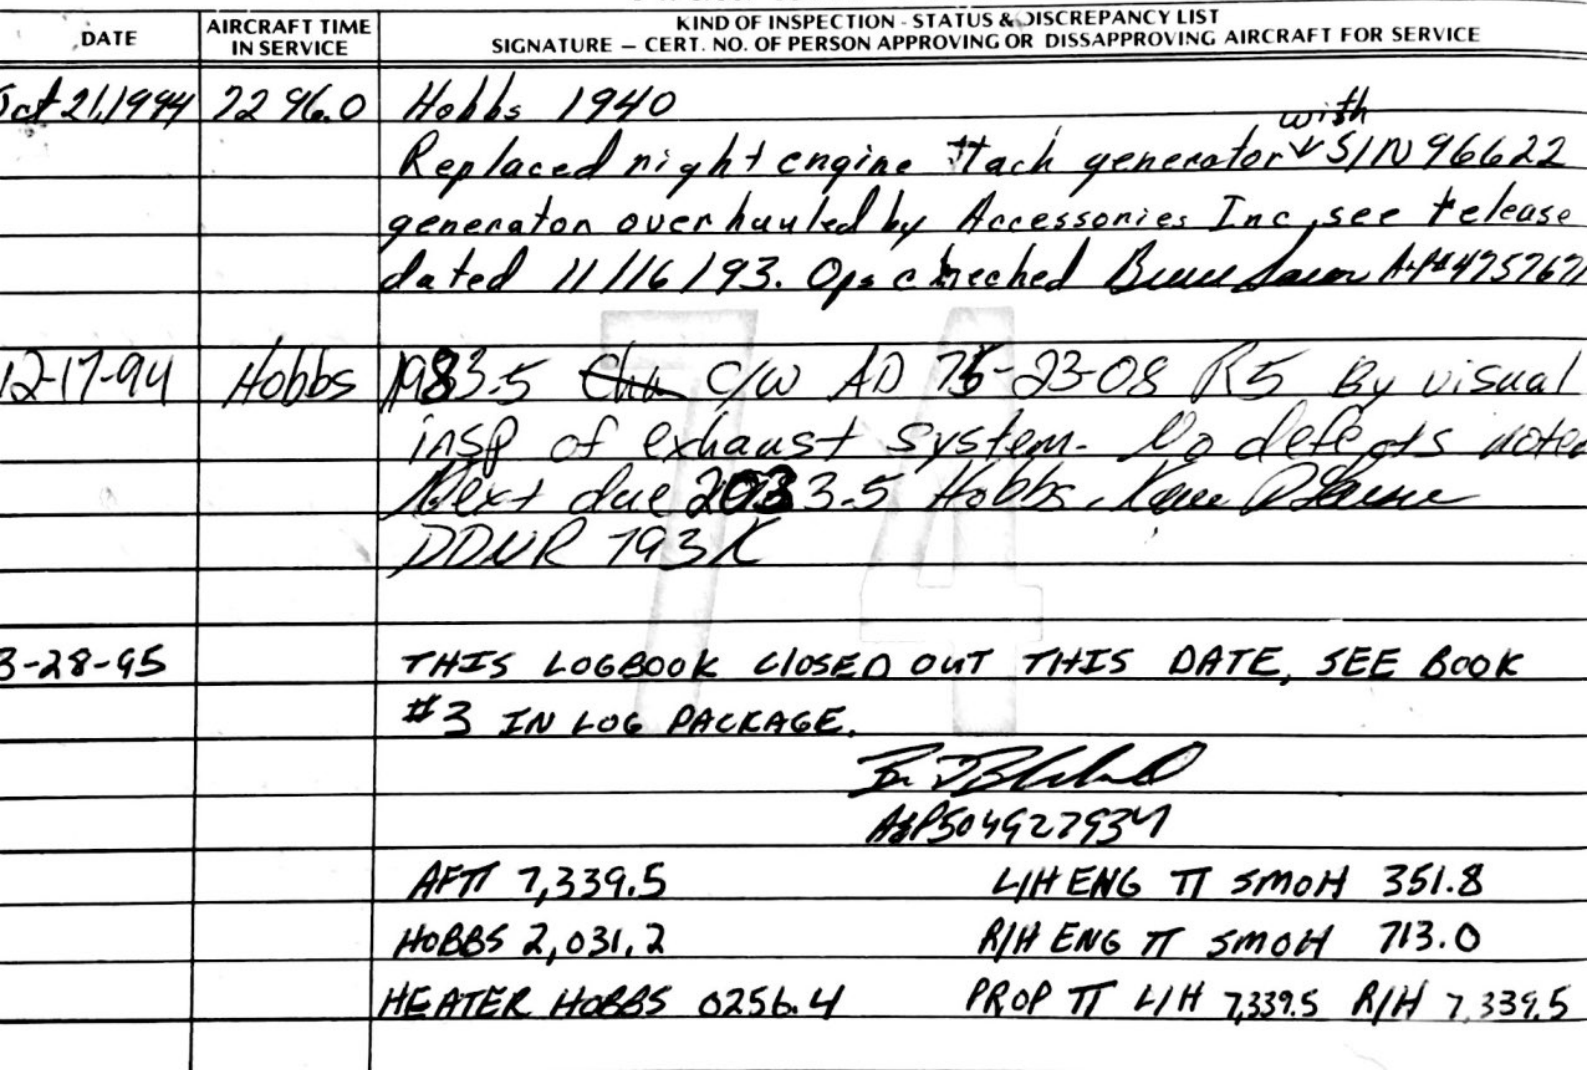 KIND OF INSPECTION - STATUS & DISCREPANCY LIST
DATE AIRCRAFT TIME IN SERVICE SIGNATURE — CERT. NO. OF PERSON APPROVING OR DISSAPPROVING AIRCRAFT FOR SERVICE
Oct 21,1994 7296.0 Hobbs 1940
with
Replaced right engine Tach generator S/N 96622
generator overhauled by Accessories Inc, see release
dated 11/16/93. Ops checked A+P# 4757671
12-17-94 Hobbs 1983.5 C/W AD 75-23-08 R5 By visual
insp of exhaust system. No defects noted
Next due 2033.5 Hobbs.
DDNR 793K
3-28-95 THIS LOGBOOK CLOSED OUT THIS DATE, SEE BOOK
#3 IN LOG PACKAGE.
A&P504927934
AFTT 7,339.5 L/H ENG TT SMOH 351.8
HOBBS 2,031.2 R/H ENG TT SMOH 713.0
HEATER HOBBS 0256.4 PROP TT L/H 7,339.5 R/H 7,339.5
74